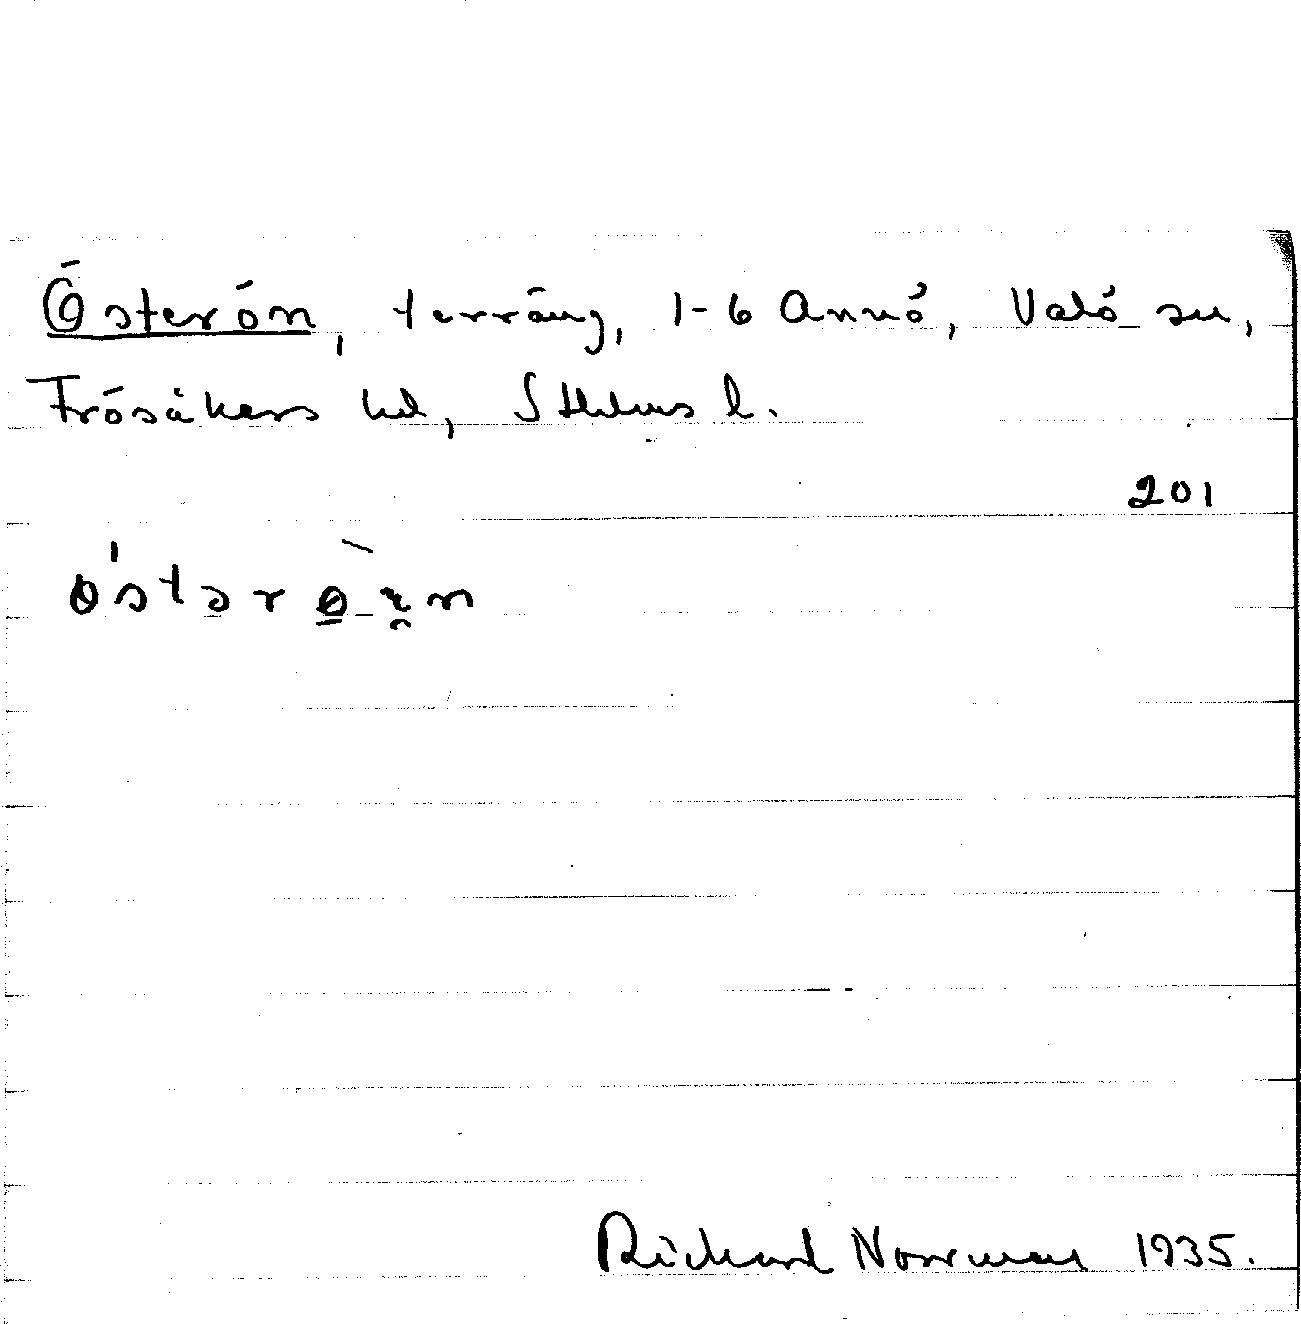 Österön, terräng, 1-6 Annö, Valö sn,
Frösåkers hd, Sthlms l.
201
Richard Norrman 1935.